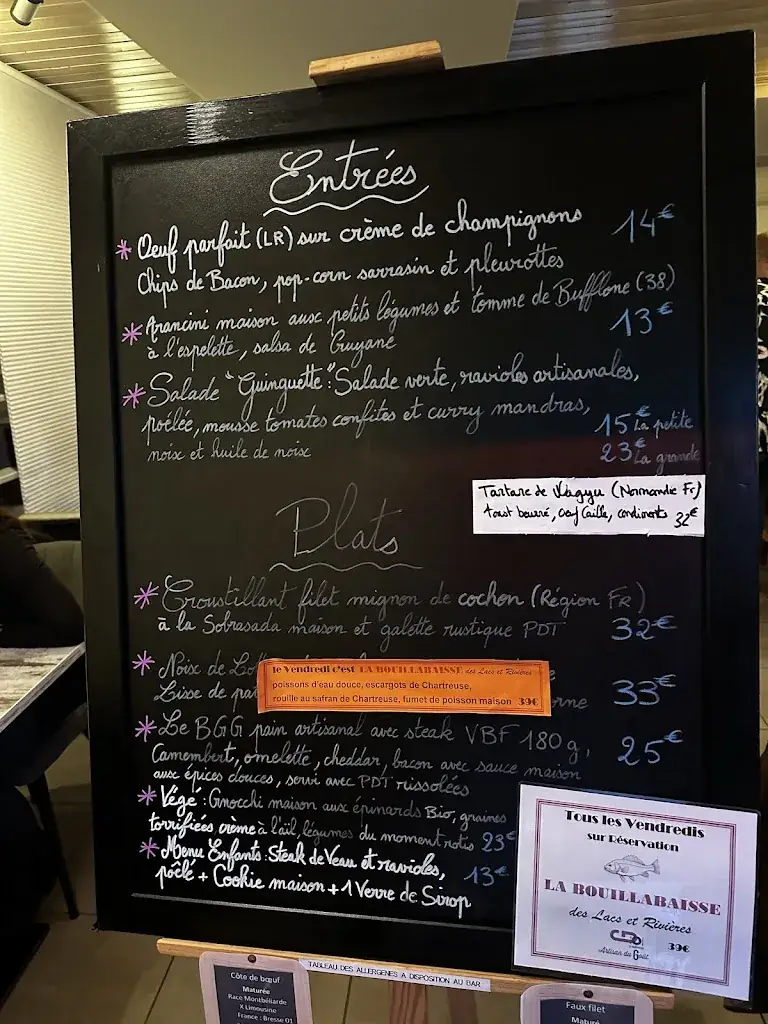 Entrées
* Oeuf parfait (LR) sur crème de champignons 14€
Chips de Bacon, pop-corn sarrasin et pleurottes
* Arancini maison aux petits légumes et tomme de Bufflone (38)
à l'espelette, salsa de Guyane 13€
* Salade "Guinguette": Salade verte, ravioles artisanales,
poêlée, mousse tomates confites et curry mandras, 15€ La petite
noix et huile de noix 23€ La grande
Tartare de Wagyu (Normandie Fr)
toast beurré, oeuf Caille, condiments 32€
Plats
* Croustillant filet mignon de cochon (Région FR)
à la Sobrasada maison et galette rustique PDT 32€
* Noix de
Lisse de 33€
le Vendredi c'est LA BOUILLABAISSE des Lacs et Rivières
poissons d'eau douce, escargots de Chartreuse,
rouille au safran de Chartreuse, fumet de poisson maison 39€
* Le BGG pain artisanal avec steak VBF 180g, 25€
Camembert, omelette, cheddar, bacon avec sauce maison
aux épices douces, servi avec PDT rissolées
* Végé : Gnocchi maison aux épinards Bio, graines
torrifiées crème à l'ail, légumes du moment rotis 23€
* Menu Enfants: Steak de Veau et ravioles, 13€
poêlé + Cookie maison + 1 Verre de Sirop
Tous les Vendredis
sur Réservation
LA BOUILLABAISSE
des Lacs et Rivières
39€
Artisan du Goût
TABLEAU DES ALLERGENES A DISPOSITION AU BAR
Côte de bœuf
Maturée
Race Montbéliarde
X Limousine
France : Bresse 01
Faux filet
Maturé